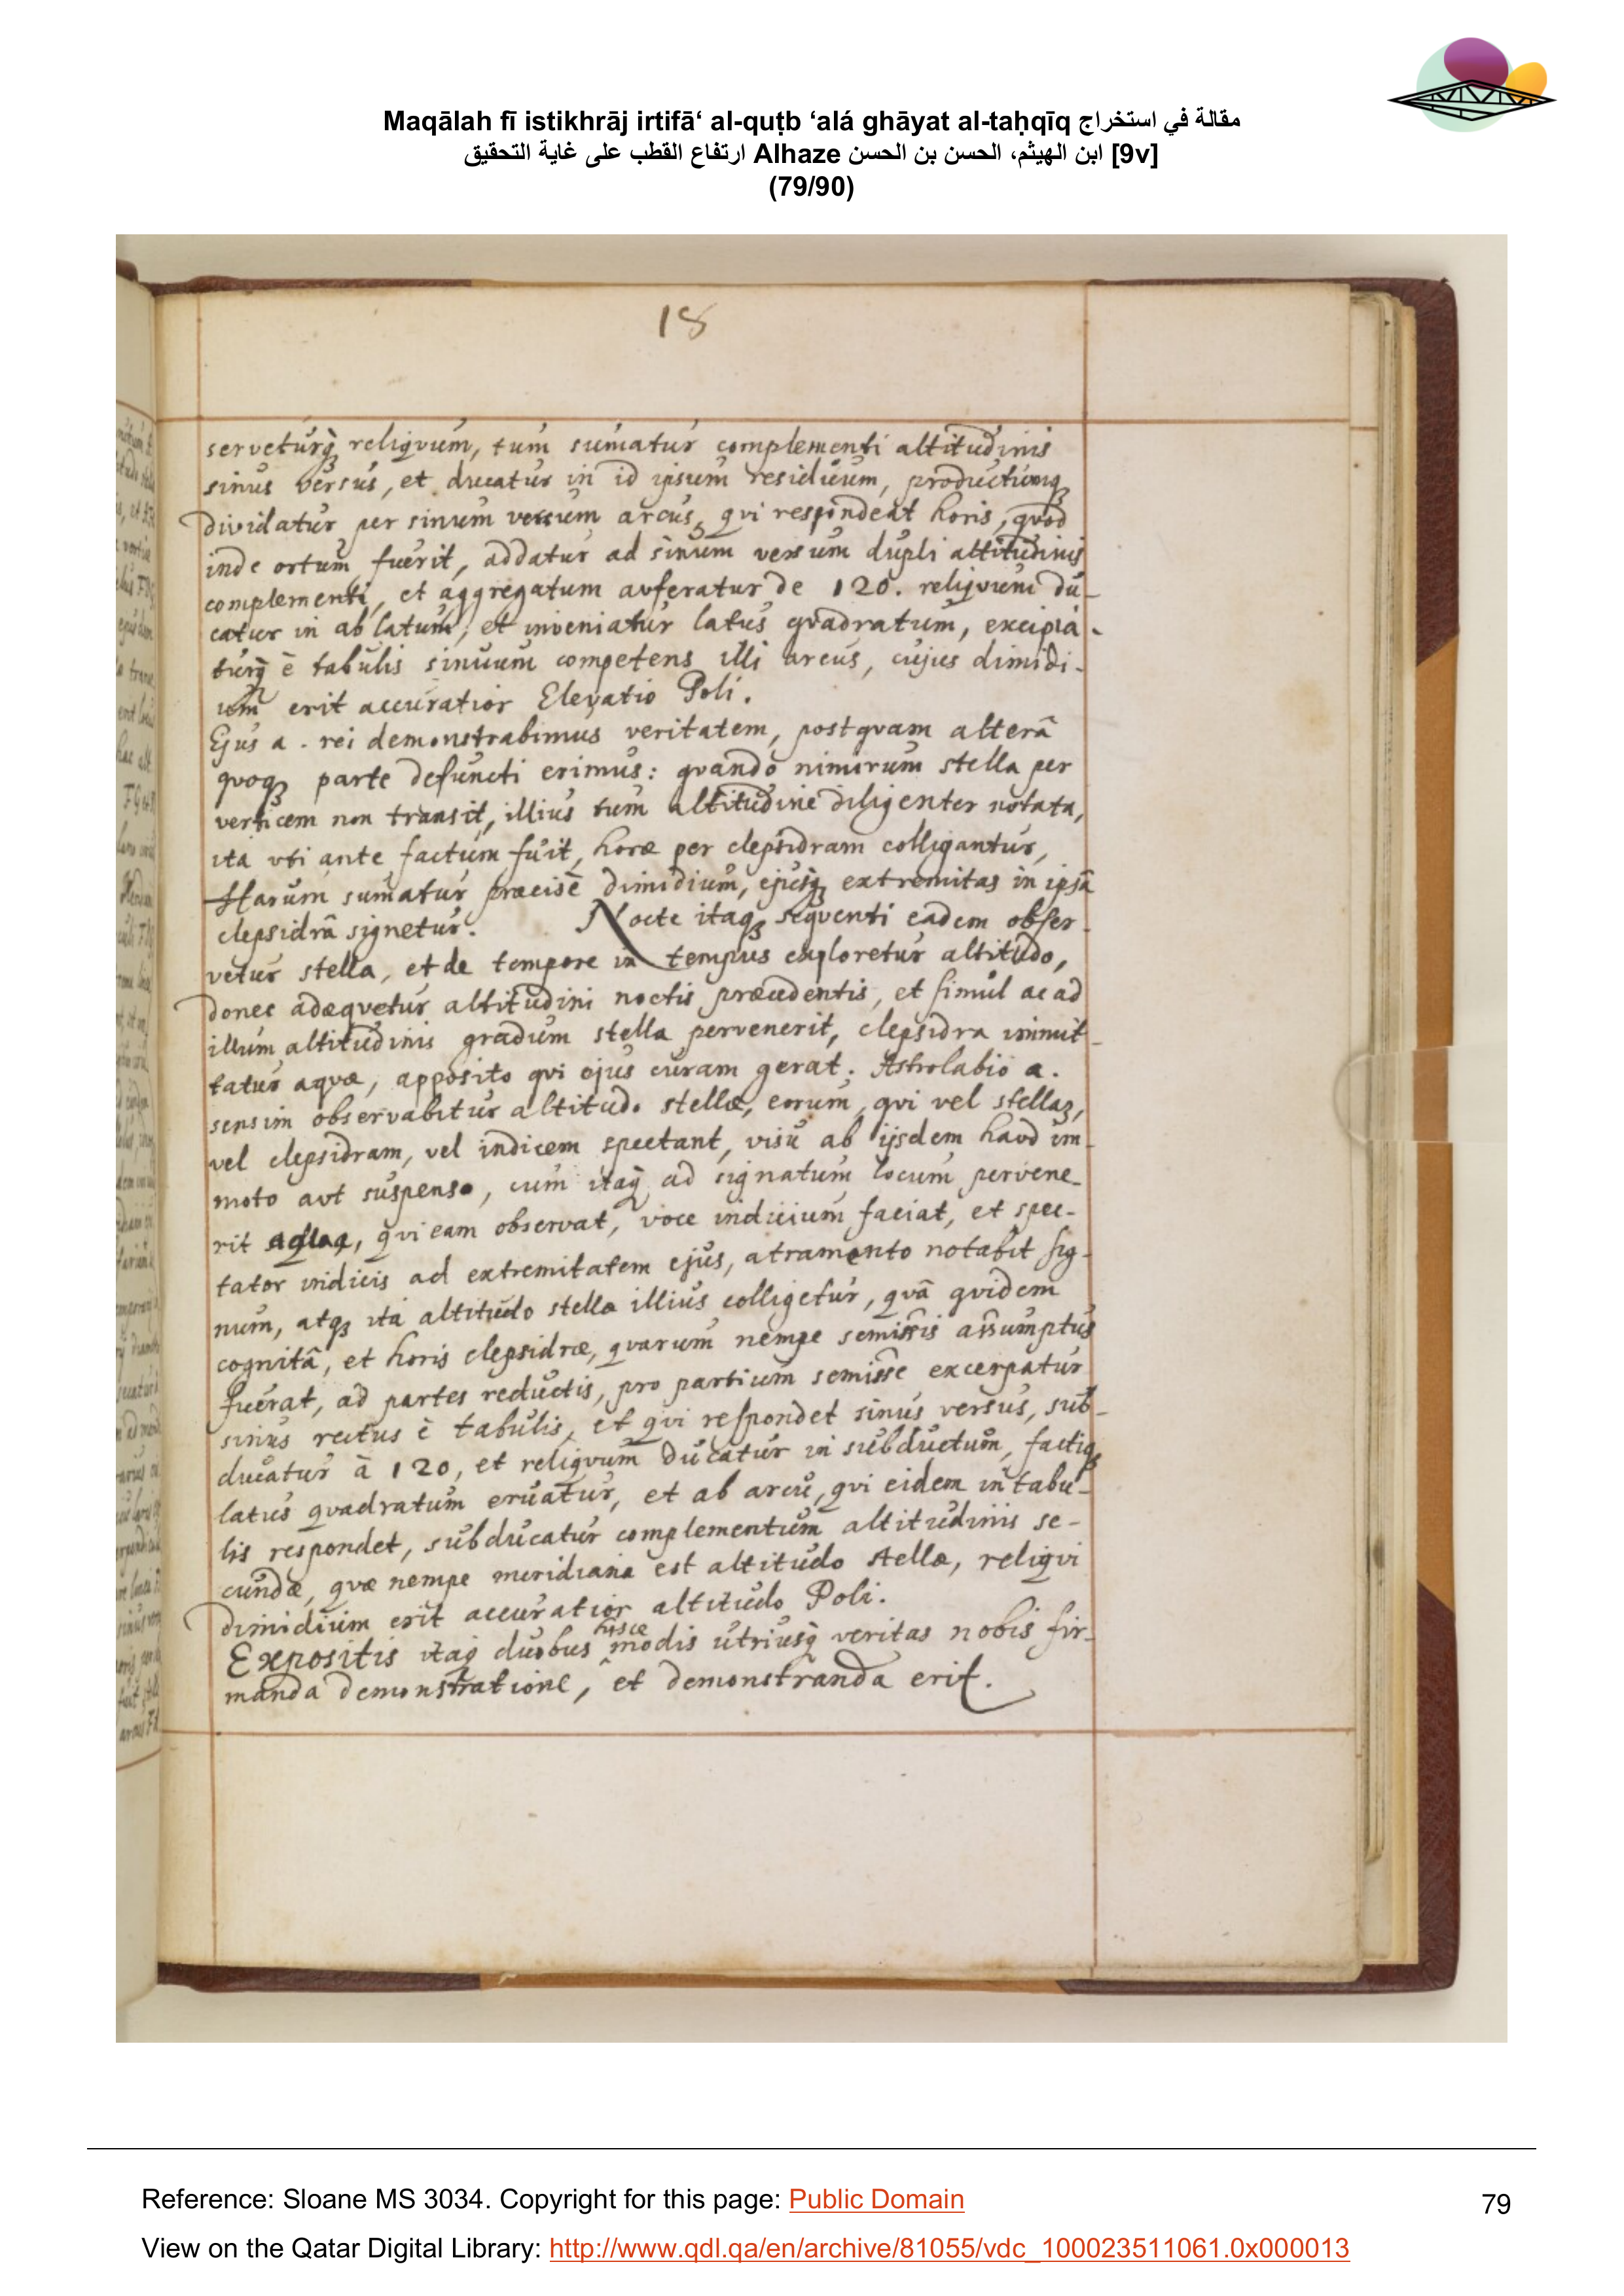 Maqālah fī istikhrāj irtifā‘ al-quṭb ‘alá ghāyat al-taḥqīq مقالة في استخراج
ارتفاع القطب على غاية التحقيق Alhaze ابن الهيثم، الحسن بن الحسن [9v]
(79/90)
18
serveturq̀ȝ reliqvum, tum sumatur complementi altitudinis
sinus versus, et ducatur in id ipsum residuum, productumqȝ
dividatur per sinum versum arcus, qvi respondeat horis, qvod
inde ortum fuerit, addatur ad sinum versum dupli altitudinis
complementi, et aggregatum avferatur de 120. reliqvum du-
catur in ablatum, et inveniatur latus qvadratum, excipia-
turq̀ è tabulis sinuum competens illi arcus, cujus dimidi-
um erit accuratior Elevatio Poli.
Ejus a. rei demonstrabimus veritatem, postqvam alterâ
quoqȝ parte defuncti erimus: qvando nimirum stella per
verticem non transit, illius tum altitudine diligenter notata,
ita vti ante factum fuit, horæ per clepsidram colligantur,
Harum sumatur præcisè dimidium, ejusqȝ extremitas in ipsâ
clepsidrâ signetur. Nocte itaqȝ seqventi eadem obser-
vetur stella, et de tempore in tempus exploretur altitudo,
donec adæqvetur altitudini noctis præcedentis, et simul ac ad
illum altitudinis gradum stella pervenerit, clepsidra immit-
tatur aqvæ, apposito qvi ejus curam gerat. Astrolabio a.
sensim observabitur altitudo stellæ, eorum, qvi vel stellas,
vel clepsidram, vel indicem spectant, visu ab ijsdem havd im-
moto avt suspenso, cum itaq̀ ad signatum locum pervene-
rit aqua, qvi eam observat, voce indicium faciat, et spec-
tator indicis ad extremitatem ejus, atramento notabit sig-
num, atqȝ ita altitudo stellæ illius colligetur, qvâ qvidem
cognitâ, et horis clepsidræ, qvarum nempe semissis assumptus
fuerat, ad partes reductis, pro partium semisse excerpatur
sinus rectus è tabulis, et qvi respondet sinus versus, sub-
ducatur à 120, et reliqvum ducatur in subductum, factiqȝ
latus qvadratum eruatur, et ab arcu, qvi eidem in tabu-
lis respondet, subducatur complementum altitudinis se-
cundæ, qvæ nempe meridiana est altitudo stellæ, reliqvi
dimidium erit accuratior altitudo Poli.
Expositis itaq̀ duobus hisce modis utriusq̀ veritas nobis fir-
manda demonstratione, et demonstranda erit.
Reference: Sloane MS 3034. Copyright for this page: Public Domain
79
View on the Qatar Digital Library: http://www.qdl.qa/en/archive/81055/vdc_100023511061.0x000013